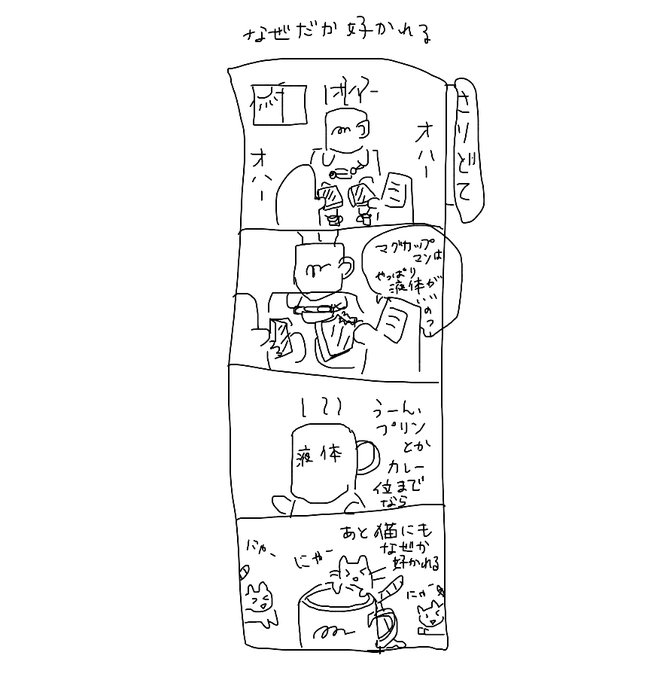 なぜだか好かれる
さりどて
オハー
オハー
m
マグカップ
マンは
やっぱり
液体が
いいのっ
m
うーん、
プリン
とか
カレー
位まで
なら
液体
あと猫にも
なぜか
好かれる
にゃー
にゃー
にゃー
m